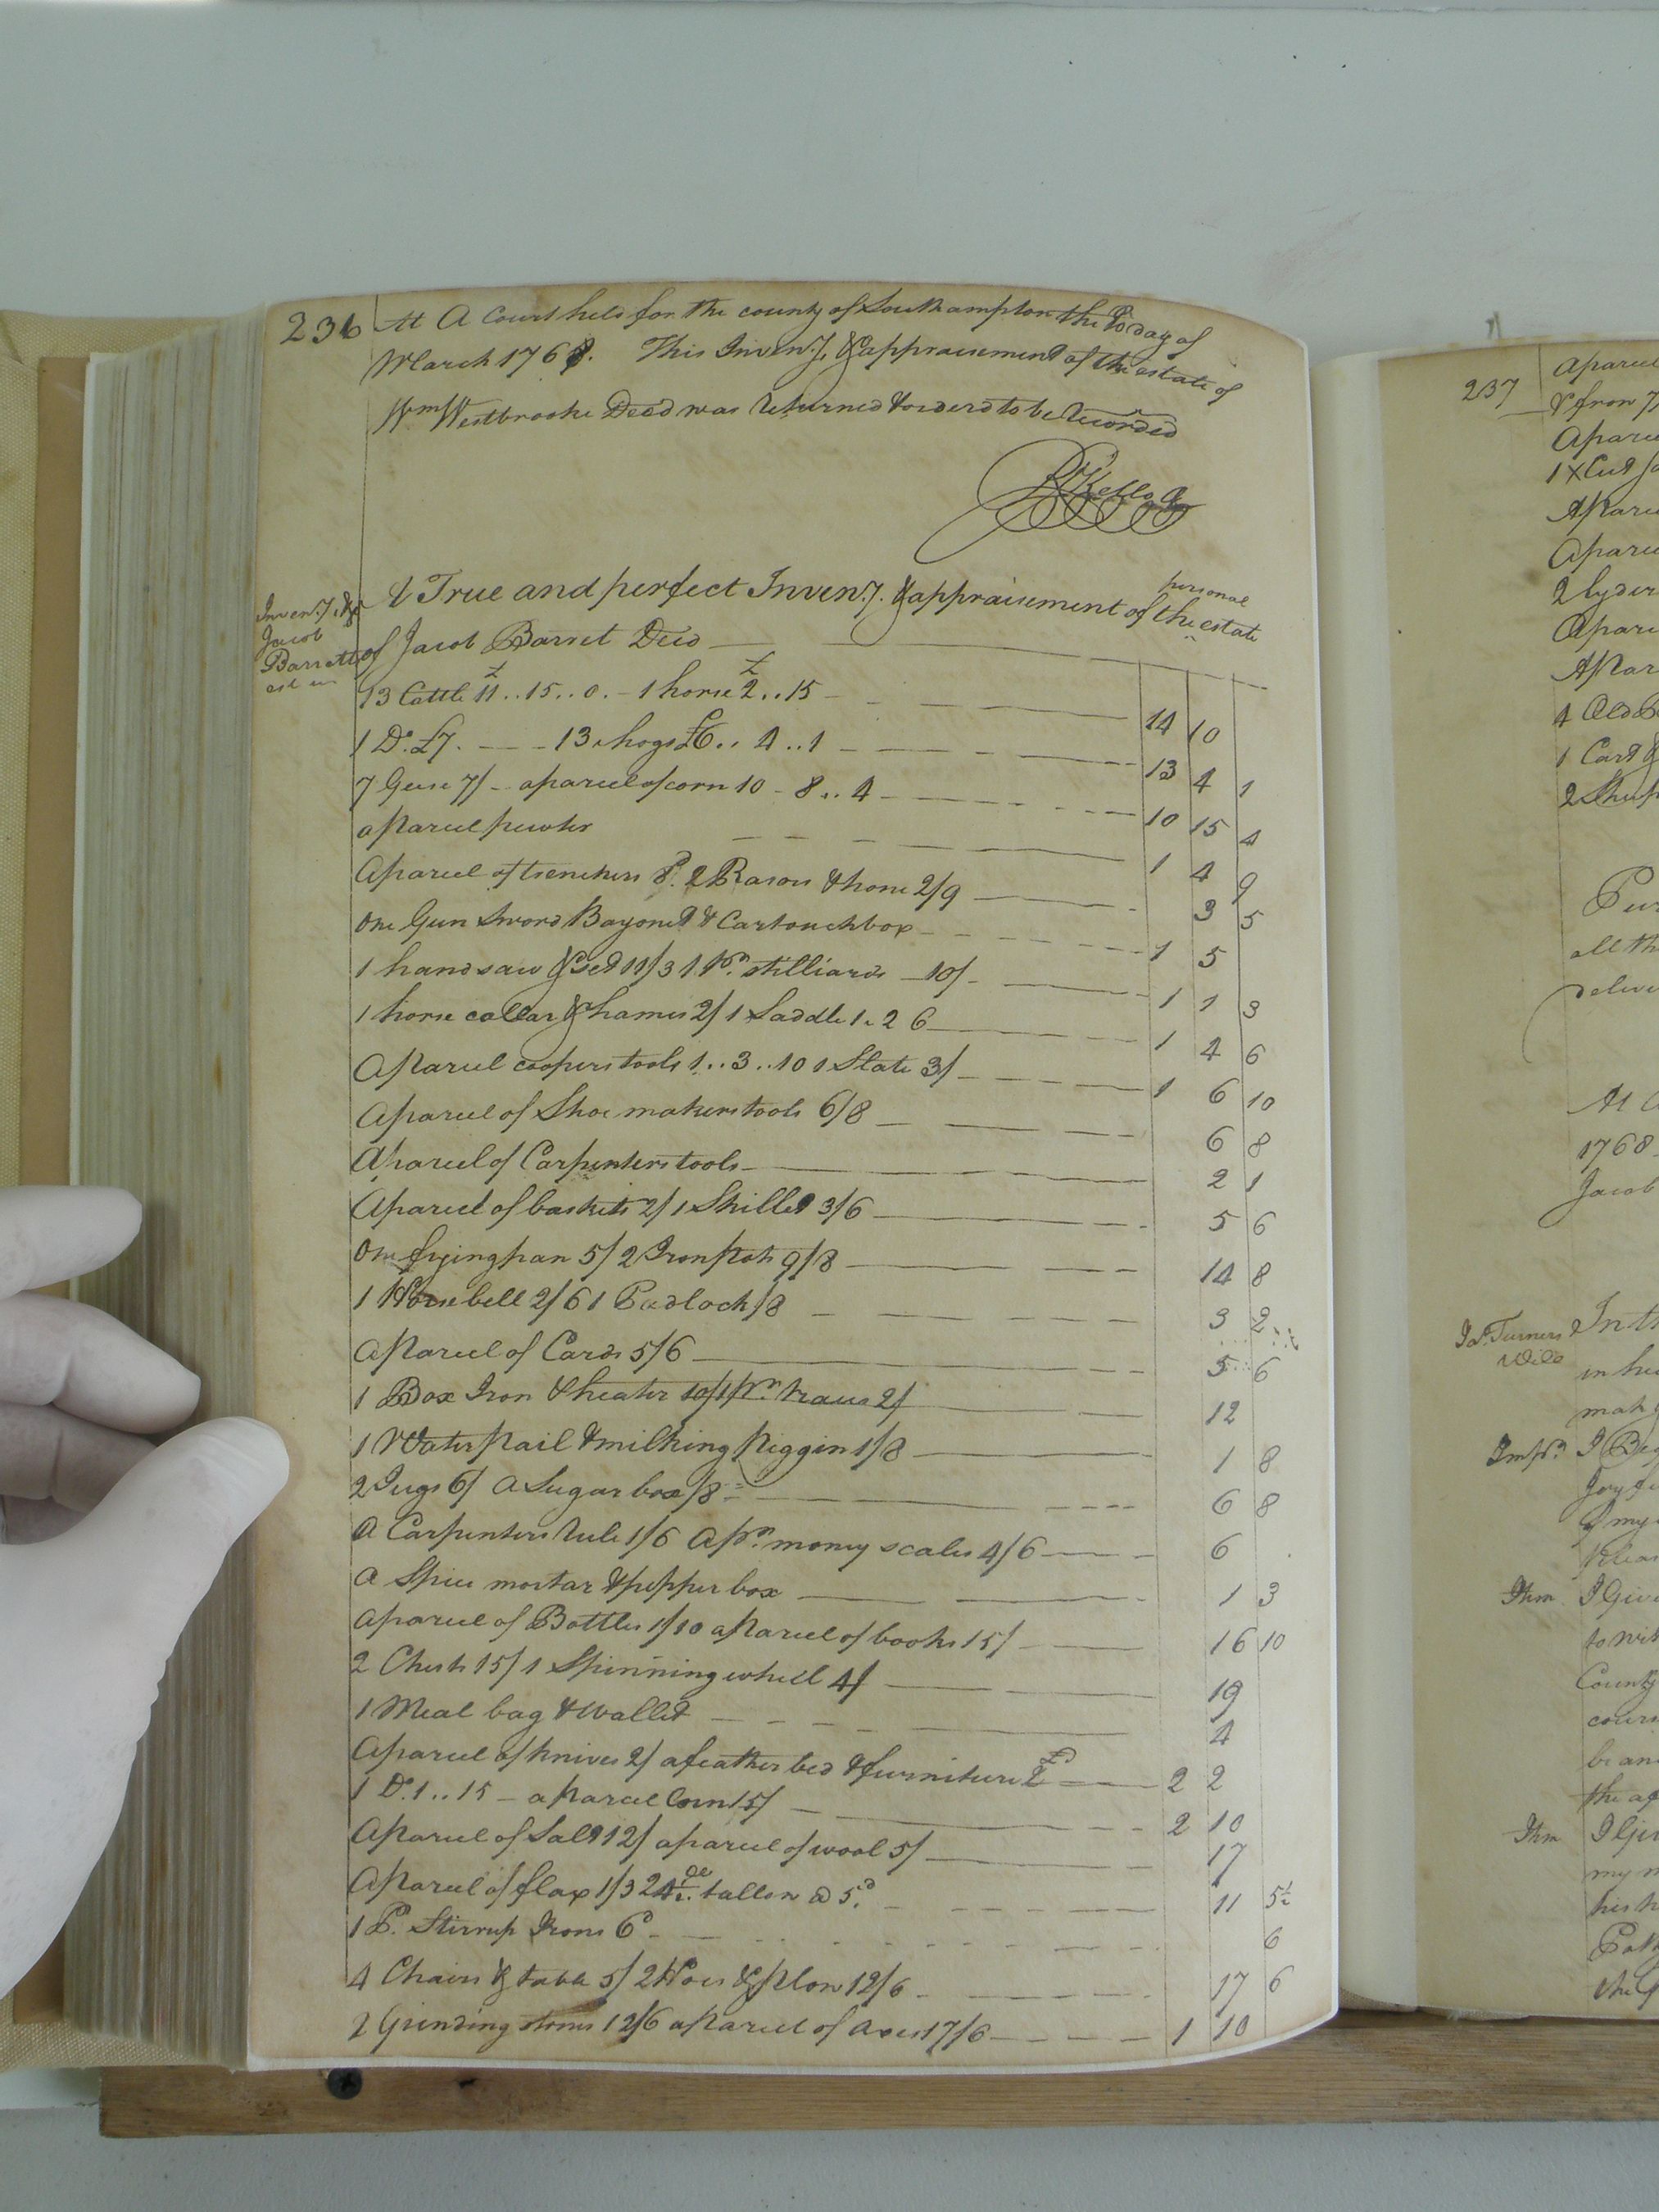 236
At A Court held for the county of Southampton the 10 day of
March 1768. This Inven.y. & appraisement of the estate of
Wm Westbrooke Decd was Returned & orderd to be Recorded
Inven.y. &c
Jacob
Barretts
A True and perfect Inven.y. & appraisement of the personal estate
of Jacob Barret Decd
13 Cattle £11..15..0.- 1 horse £2..15 - 14 10
1 Do. £7. - 13 hogs £6.. 4..1 - 13 4 1
7 Geese 7/ - a parcel of corn 10 - 8..4 - 10 15 4
a parcel pewter 1 4 9
A parcel of trenchers 8d. 2 Rasors & hone 2/9 3 5
One Gun Sword Bayonet & Cartouchbox - 1 5
1 handsaw & set 11/3 1 pr. stilliards - 10/- 1 1 3
1 horse collar & hames 2/ 1 Saddle 1.. 2 6 1 4 6
A parcel coopers tools 1..3..10 1 Slate 3/ 1 6 10
A parcel of Shoe makers tools 6/8 6 8
A parcel of Carpenters tools 2 1
A parcel of baskets 2/ 1 Skillet 3/6 5 6
One frying pan 5/ 2 Iron pots 9/8 14 8
1 Horse bell 2/6 1 Padlock /8 3 2
A parcel of Cards 5/6 5 6
1 Box Iron & heater 10/ 1 pr. 2/ 12
1 Water pail & milking piggin 1/8 1 8
2 Jugs 6/ A Sugar box /8 6 8
A Carpenters Rule 1/6 A pr. money scales 4/6 6
A Spice mortar & pepper box 1 3
A parcel of Bottles 1/10 a parcel of books 15/ 16 10
2 Chests 15/ 1 Spinning whell 4/ 19
1 Meal bag & Wallet 4
A parcel of knives 2/ a feather bed & furniture £2 2 2
1 Do. 1..15 - a parcel Corn 15/ 2 10
A parcel of Salt 12/ a parcel of wool 5/ 17
A parcel of flax 1/3 24½ tallow @ 5d. 11 5½
1 P. Stirrup Irons 6d 6
4 Chairs & table 5/ 2 Hoes & plow 12/6 17 6
2 Grinding stones 12/6 a parcel of axes 17/6 1 10
237
A parcel
& from 7/
A parcel
1 X Cut
A parcel
A parcel
2
A parcel
A par
4 Old
1 Cart &
2
all th
At A
1768
Jacob
Jas. Turners
Will
In th
in he
mak
I
of my
Item
I Give
to wit
County
cours
be an
the a
Item
I Give
my
his
the